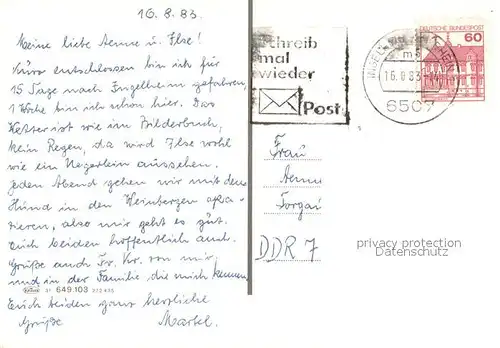 16.8.83.
Meine liebe Aenne u. Ilse!
Kurz entschlossen bin ich für
15 Tage nach Ingelheim gefahren,
1 Woche bin ich schon hier. Das
Wetter ist wie im Bilderbuch,
kein Regen, da wird Ilse wohl
wie ein Negerlein aussehen.
Jeden Abend gehen wir mit dem
Hund in den Weinbergen spa-
zieren, also mir geht es gut.
Euch beiden hoffentlich auch.
Grüße auch Fr. Kr. von mir,
und in der Familie die mich kennen.
Euch beiden ganz herzliche
Grüße Martel.
649.103
Schreib
mal
wieder
Post
16.8.83
6507
60
DEUTSCHE BUNDESPOST
Frau
Aenne
Torgau
DDR 7
privacy protection
Datenschutz